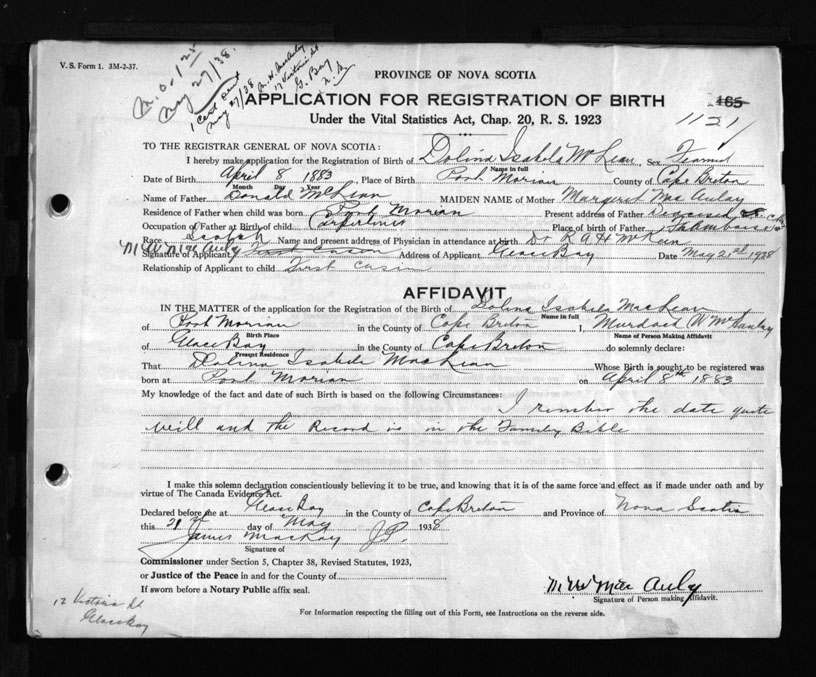 V. S. Form 1. 3M-2-37.
M.O. 125
May 27/38.
1 Cert sent
May 27/38
M. W. McAuly
12 Victoria St
G. Bay
N. S.
PROVINCE OF NOVA SCOTIA
APPLICATION FOR REGISTRATION OF BIRTH
165
Under the Vital Statistics Act, Chap. 20, R. S. 1923
1121
TO THE REGISTRAR GENERAL OF NOVA SCOTIA:
I hereby make application for the Registration of Birth of Dolina Isabela McLean, Sex
Name in full
Date of Birth April 8 1883, Place of Birth Port Morian County of Cape Breton
Month Day Year
Name of Father Donald McLean MAIDEN NAME of Mother Margaret MacAulay
Residence of Father when child was born Port Morian Present address of Father
Occupation of Father at Birth of child Place of birth of Father
Race Scotch Name and present address of Physician in attendance at birth Dr R A H McKeen
Signature of Applicant M W McAuly First Cusin Address of Applicant Glace Bay Date May 21st 1938
Relationship of Applicant to child First Cusin
AFFIDAVIT
IN THE MATTER of the application for the Registration of the Birth of Dolina Isabela MacLean
Name in full
of Port Morian in the County of Cape Breton I, Murdock W McAulay
Birth Place Name of Person Making Affidavit
of Glace Bay in the County of Cape Breton do solemnly declare:
Present Residence
That Dolina Isabela MacLean Whose Birth is sought to be registered was
born at Port Morian on April 8th 1883
My knowledge of the fact and date of such Birth is based on the following Circumstances:
I rember the date quite
well and the Record is in the Family Bible
I make this solemn declaration conscientiously believing it to be true, and knowing that it is of the same force and effect as if made under oath and by
virtue of The Canada Evidence Act.
Declared before me at Glace Bay in the County of Cape Breton and Province of Nova Scotia
this 21st day of May 1938
James MacKay J.P.
Signature of
Commissioner under Section 5, Chapter 38, Revised Statutes, 1923,
or Justice of the Peace in and for the County of
If sworn before a Notary Public affix seal.
M W MacAuly
Signature of Person making Affidavit.
12 Victoria St
Glace Bay
For Information respecting the filling out of this Form, see Instructions on the reverse side.